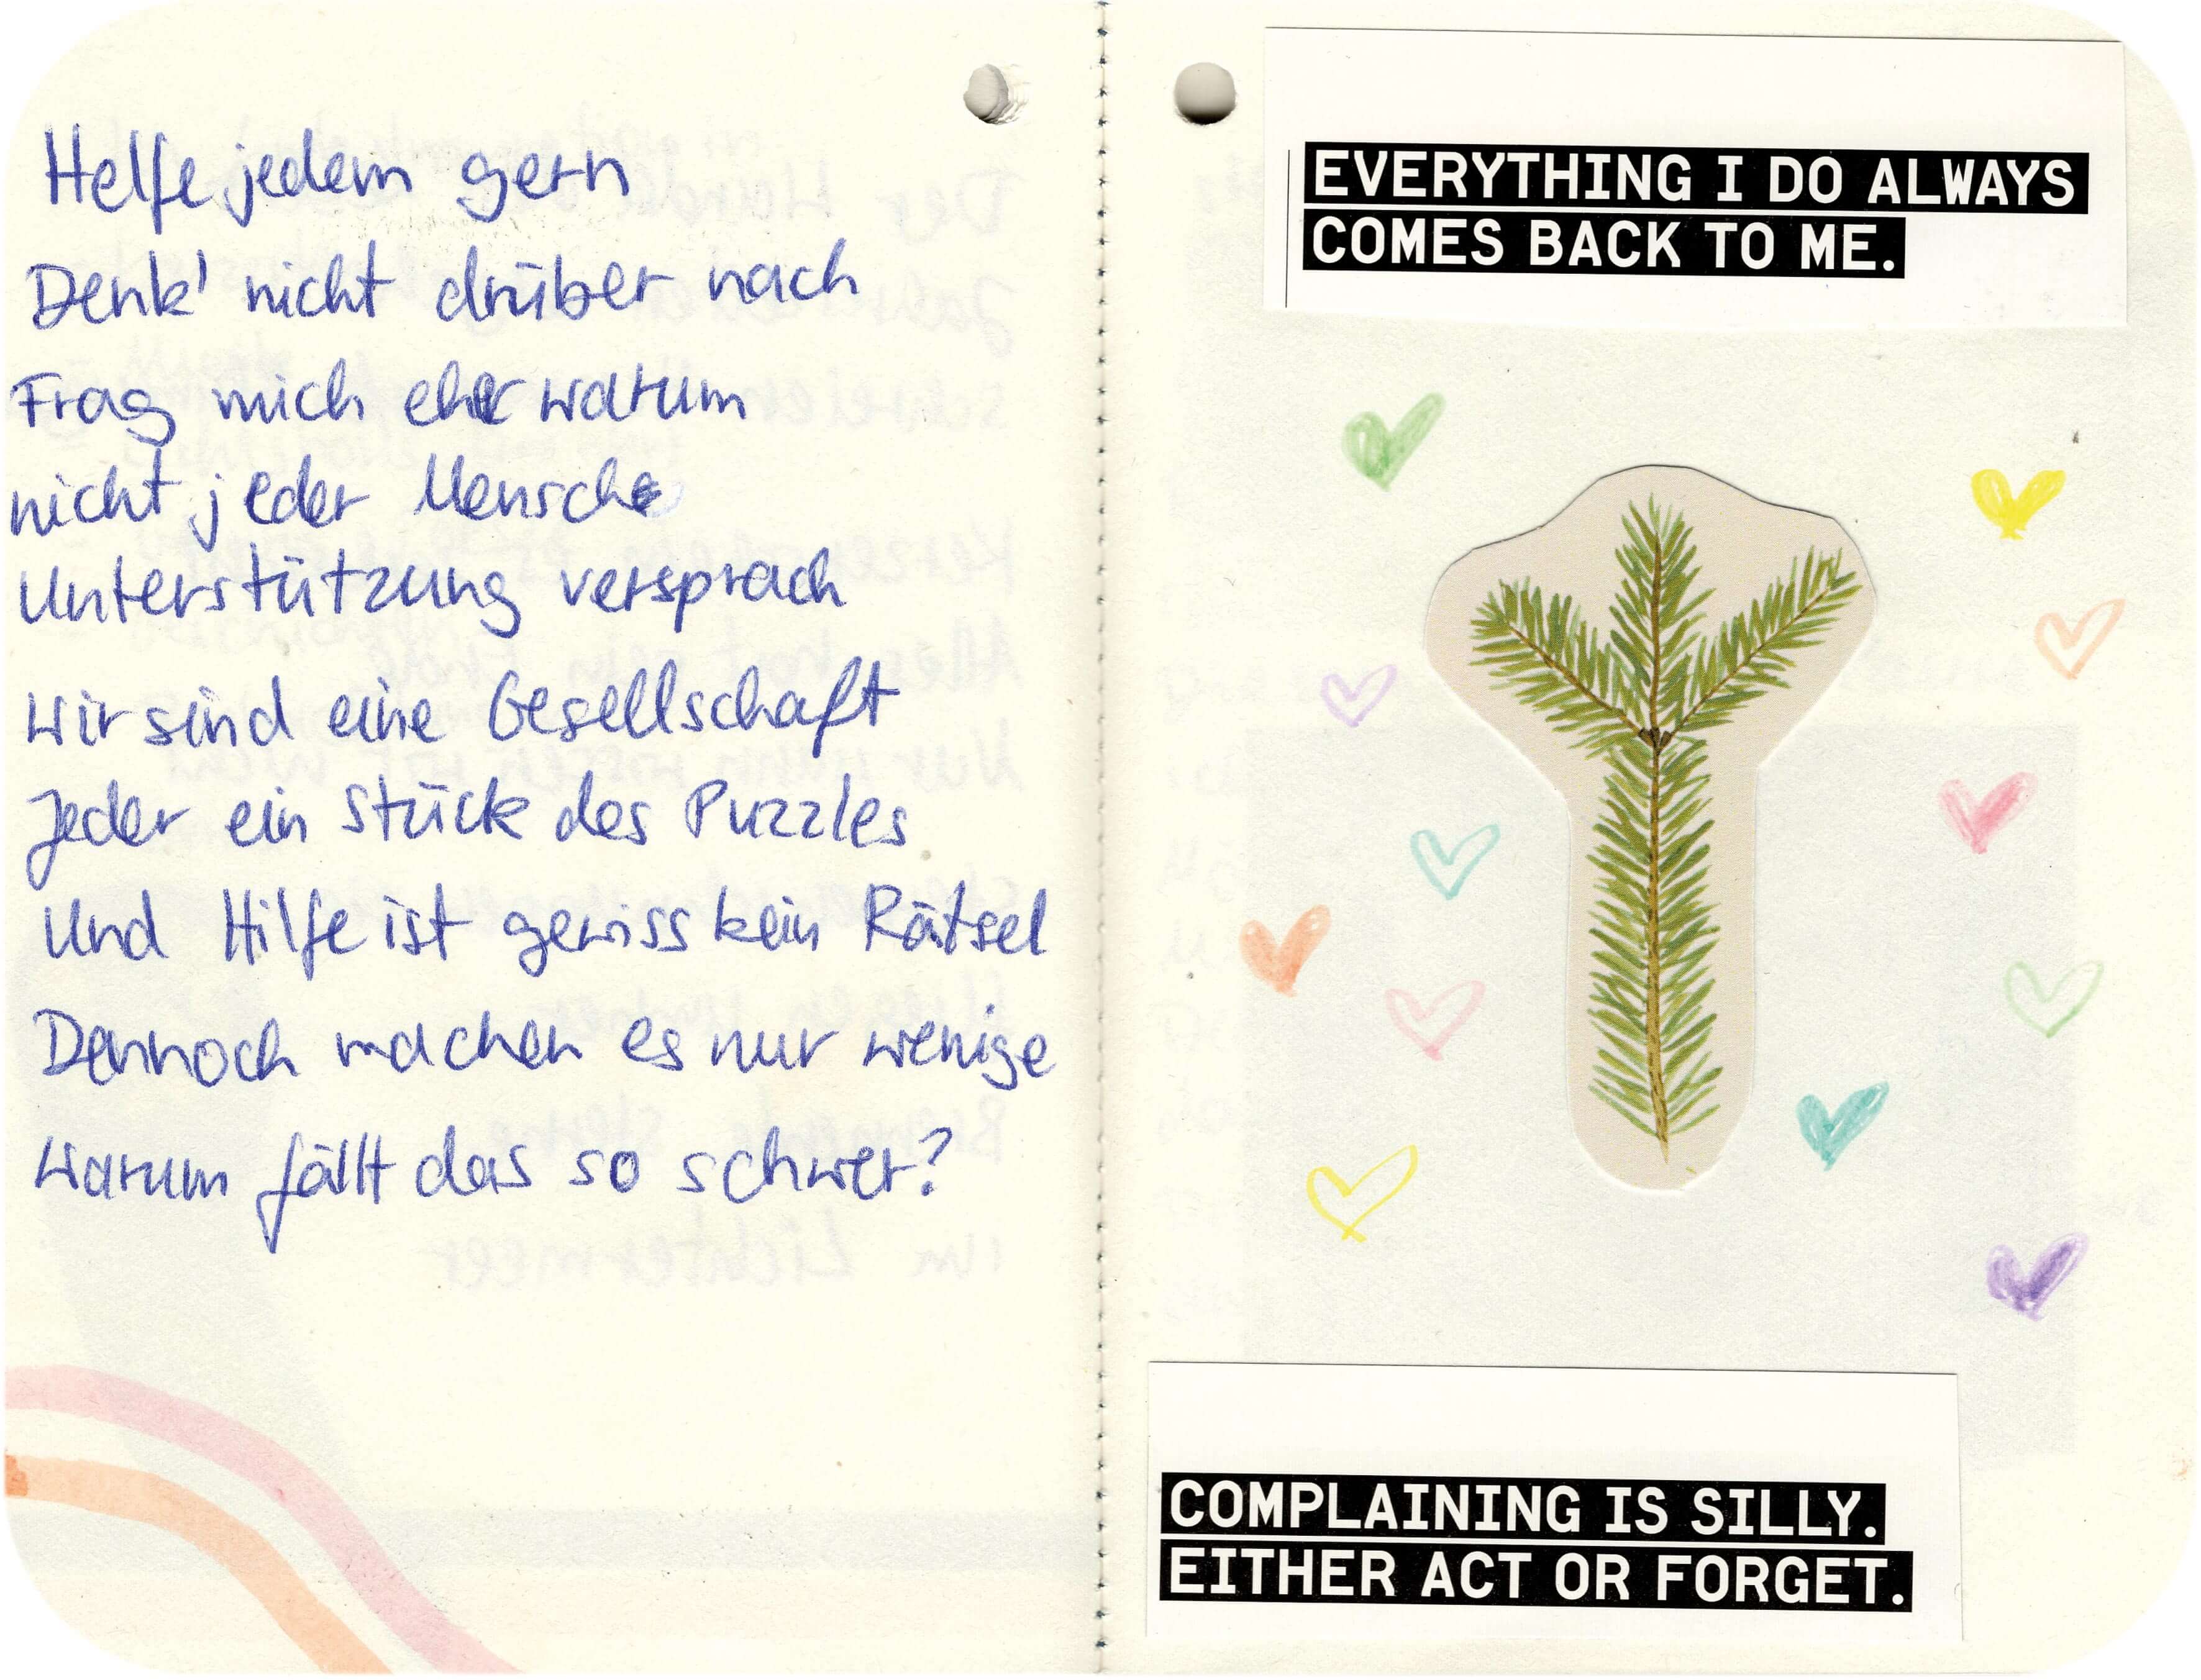 Helfe jedem gern
Denk' nicht drüber nach
Frag mich eher warum
nicht jeder Mensch
Unterstützung versprach
Wir sind eine Gesellschaft
Jeder ein Stück des Puzzles
Und Hilfe ist gewiss kein Rätsel
Dennoch machen es nur wenige
Warum fällt das so schwer?
EVERYTHING I DO ALWAYS
COMES BACK TO ME.
COMPLAINING IS SILLY.
EITHER ACT OR FORGET.